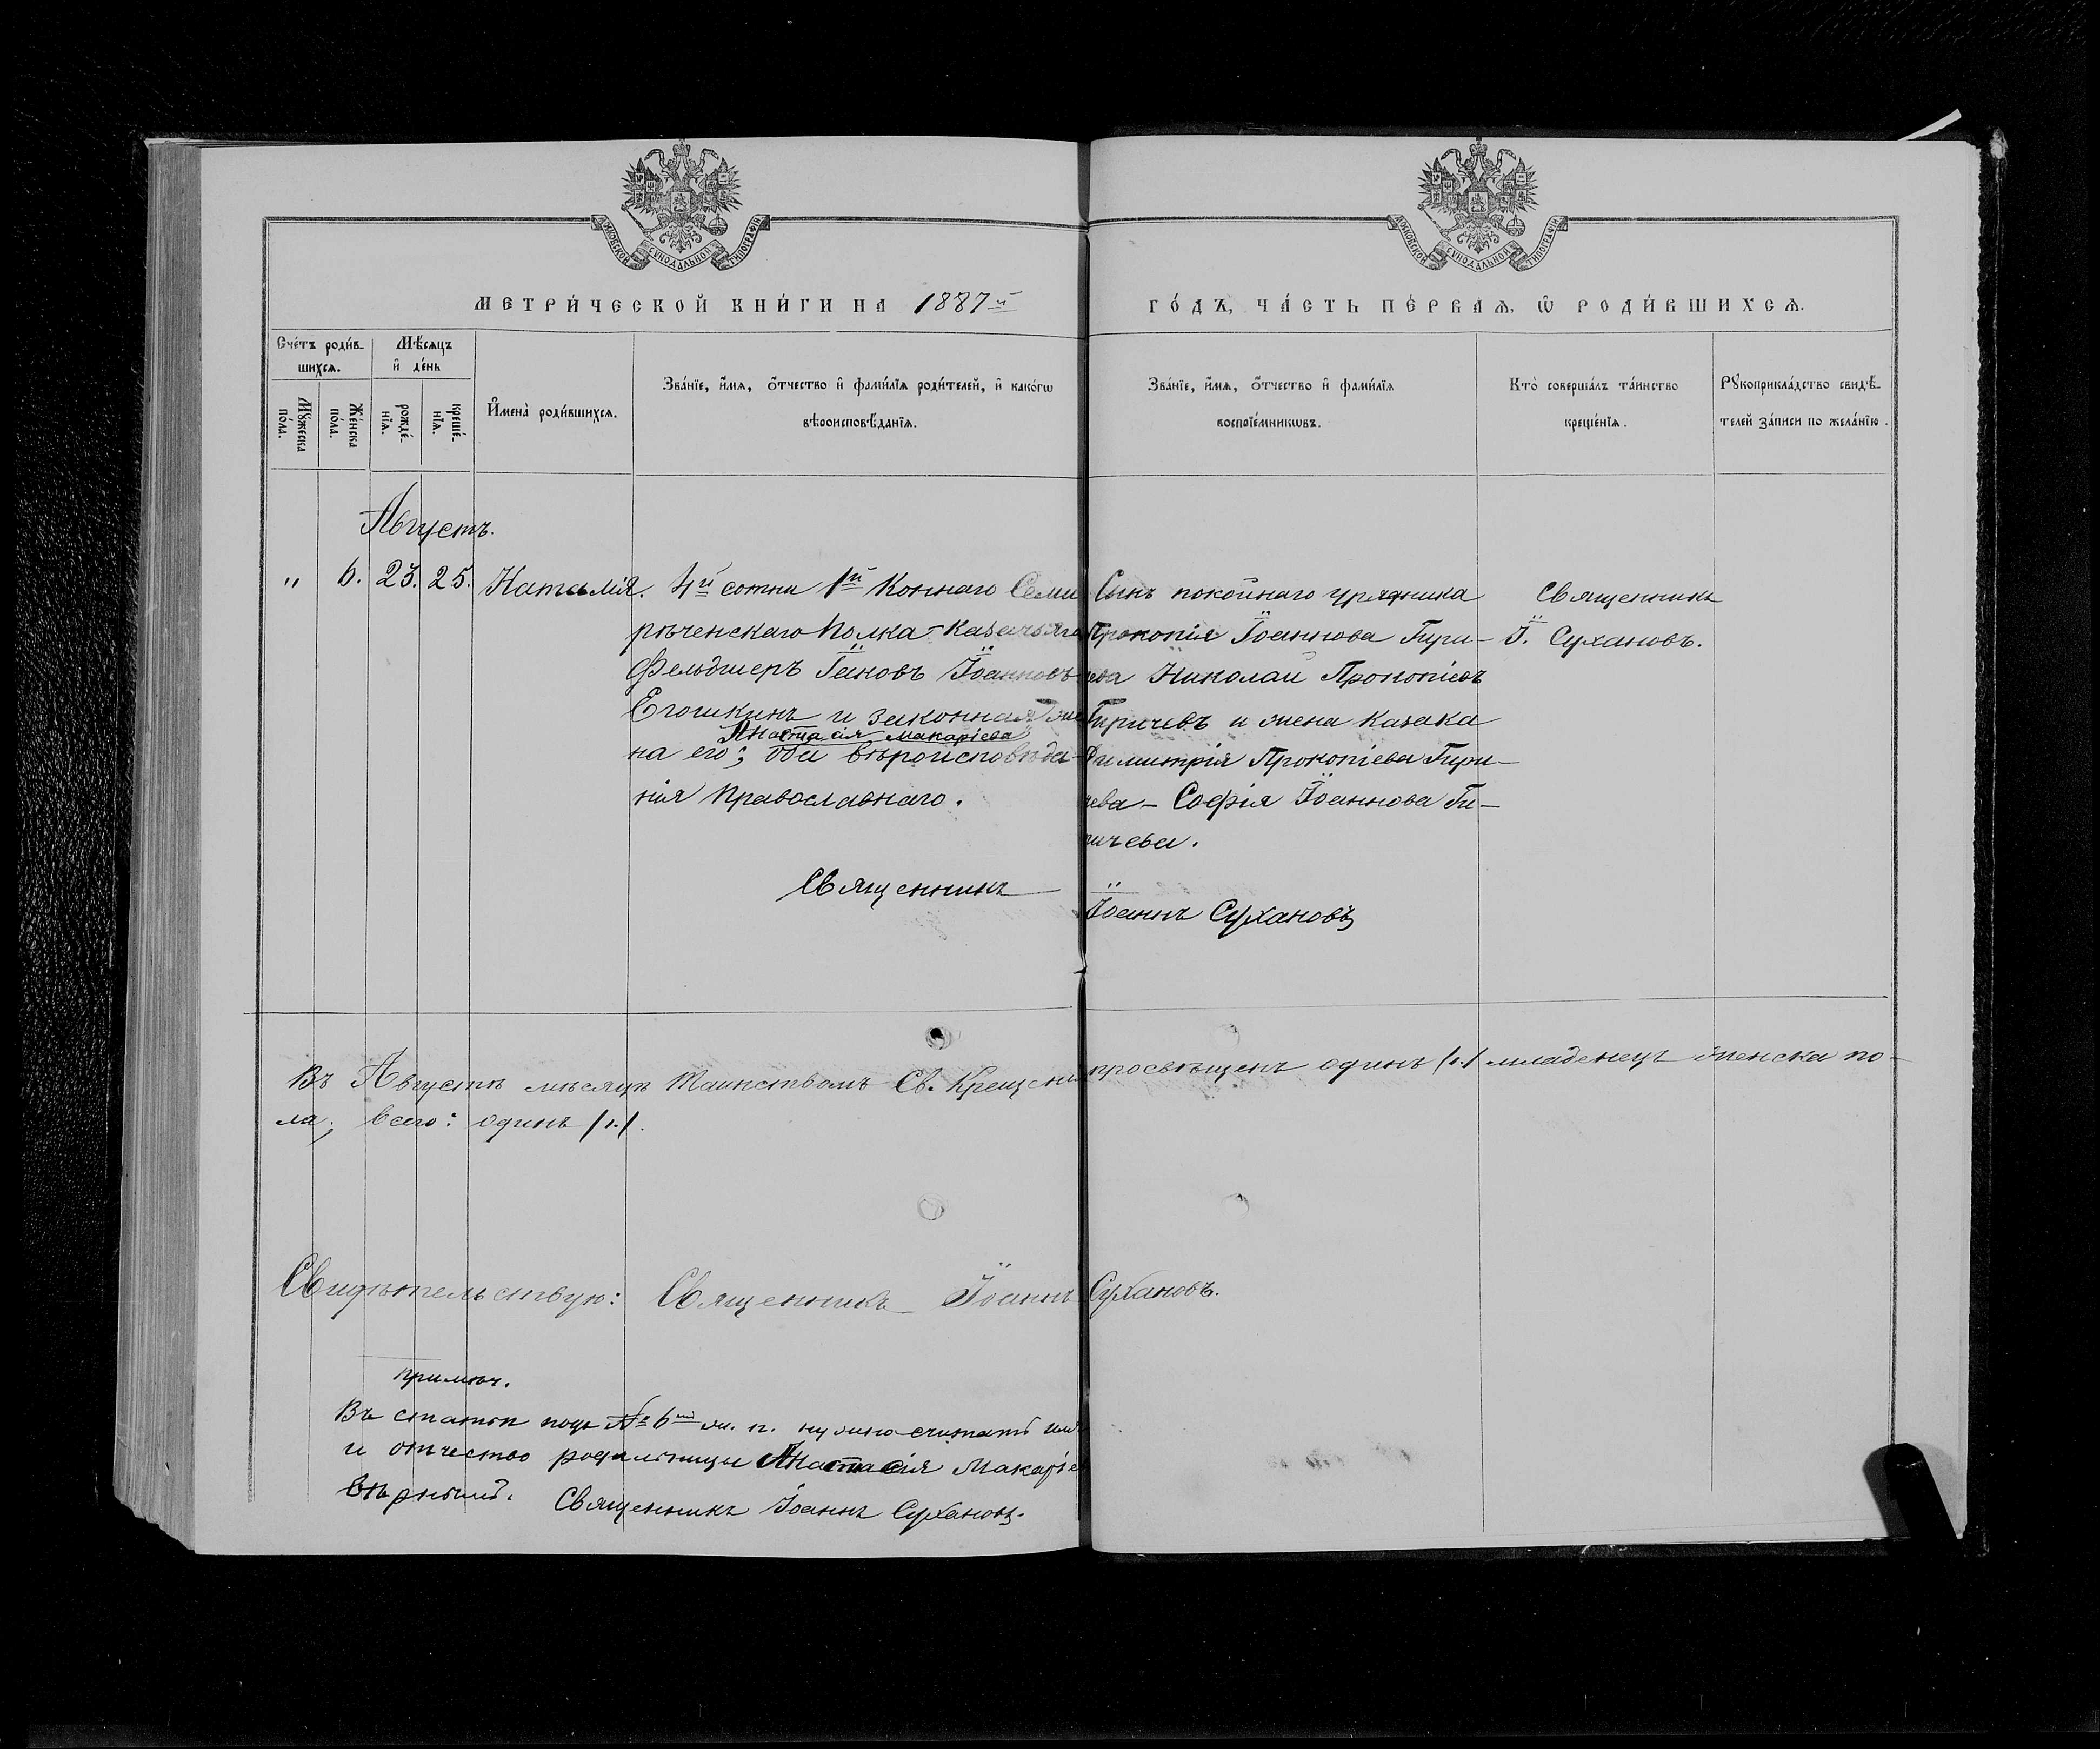 МОСКОВСКОЙ СУНОДАЛЬНОЙ ТИПОГРАФІИ
МОСКОВСКОЙ СУНОДАЛЬНОЙ ТИПОГРАФІИ
МЕТРИ́ЧЕСКОЙ КНИ́ГИ НА 1887й
ГО́ДЪ, ЧА́СТЬ ПЕ́РВАѦ, Ѡ РОДИ́ВШИХСѦ.
Сче́тъ роди́в-
шихсѧ.
Мѣ́сѧцъ
и҆ де́нь
Мꙋ́жеска
по́ла.
Же́нска
по́ла.
рожде́-
нїѧ.
креще́-
нїѧ.
И҆мена̀ роди́вшихсѧ.
Зва́нїе, и҆́мѧ, ѻ҆́тчество и҆ фами́лїѧ роди́телей, и҆ како́гѡ
вѣроисповѣ́данїѧ.
Зва́нїе, и҆́мѧ, ѻ҆́тчество и҆ фами́лїѧ
воспрїе́мникѡвъ.
Кто̀ соверша́лъ та́инство
креще́нїѧ.
Рꙋкоприкла́дство свидѣ́-
телей за́писи по жела́нїю.
Августъ.
" 6. 23. 25. Наталія.
4й сотни 1й Коннаго Семи
рѣченскаго Полка-Казачьяго
Фельдшеръ Іаковъ Іоанновъ
Егошкинъ и законная же
Анастасія Макаріева
на его; оба вѣроисповѣда-
нія Православнаго.
Сынъ покойнаго урядника
Прокопія Іоаннова Гири-
чева Николай Прокопіевъ
Гиричевъ и жена Казака
Димитрія Прокопіева Гири-
чева - Софія Іоаннова Ги-
ричева.
Священникъ
І. Сухановъ.
Священникъ Іоаннъ Сухановъ
Въ Августѣ мѣсяцѣ Таинствомъ Св. Крещенія просвѣщенъ одинъ /1./ младенецъ женска по-
ла; всего: одинъ /1./.
Свидѣтельствую: Священникъ Іоаннъ Сухановъ.
Примѣч.
Въ статьѣ подъ № 6мъ ж. п. нужно считать имя
и отчество родильницы Анастасія Макаріев
вѣрнымъ. Священникъ Іоаннъ Сухановъ.